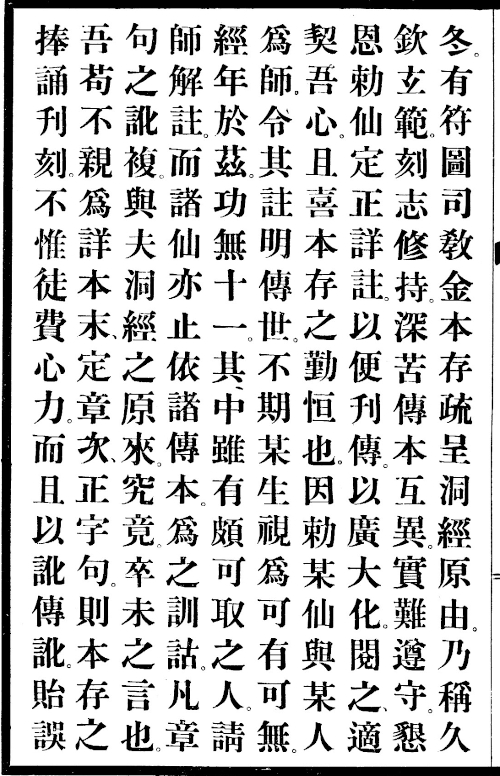 冬。有符圖司敎金本存疏呈洞經原由。乃稱久
欽玄範。刻志修持。深苦傳本互異。實難遵守。懇
恩勅仙定正詳註。以便刊傳。以廣大化。閱之、適
契吾心。且喜本存之勤恒也。因勅某仙與某人
爲師。令其註明傳世。不期某生視爲可有可無。
經年於茲。功無十一。其中雖有頗可取之人。請
師解註。而諸仙亦止依諸傳本。爲之訓詁。凡章
句之訛複。與夫洞經之原來。究竟。卒未之言也。
吾苟不親爲詳本末、定章次、正字句。則本存之
捧誦刊刻。不惟徒費心力。而且以訛傳訛。貽誤